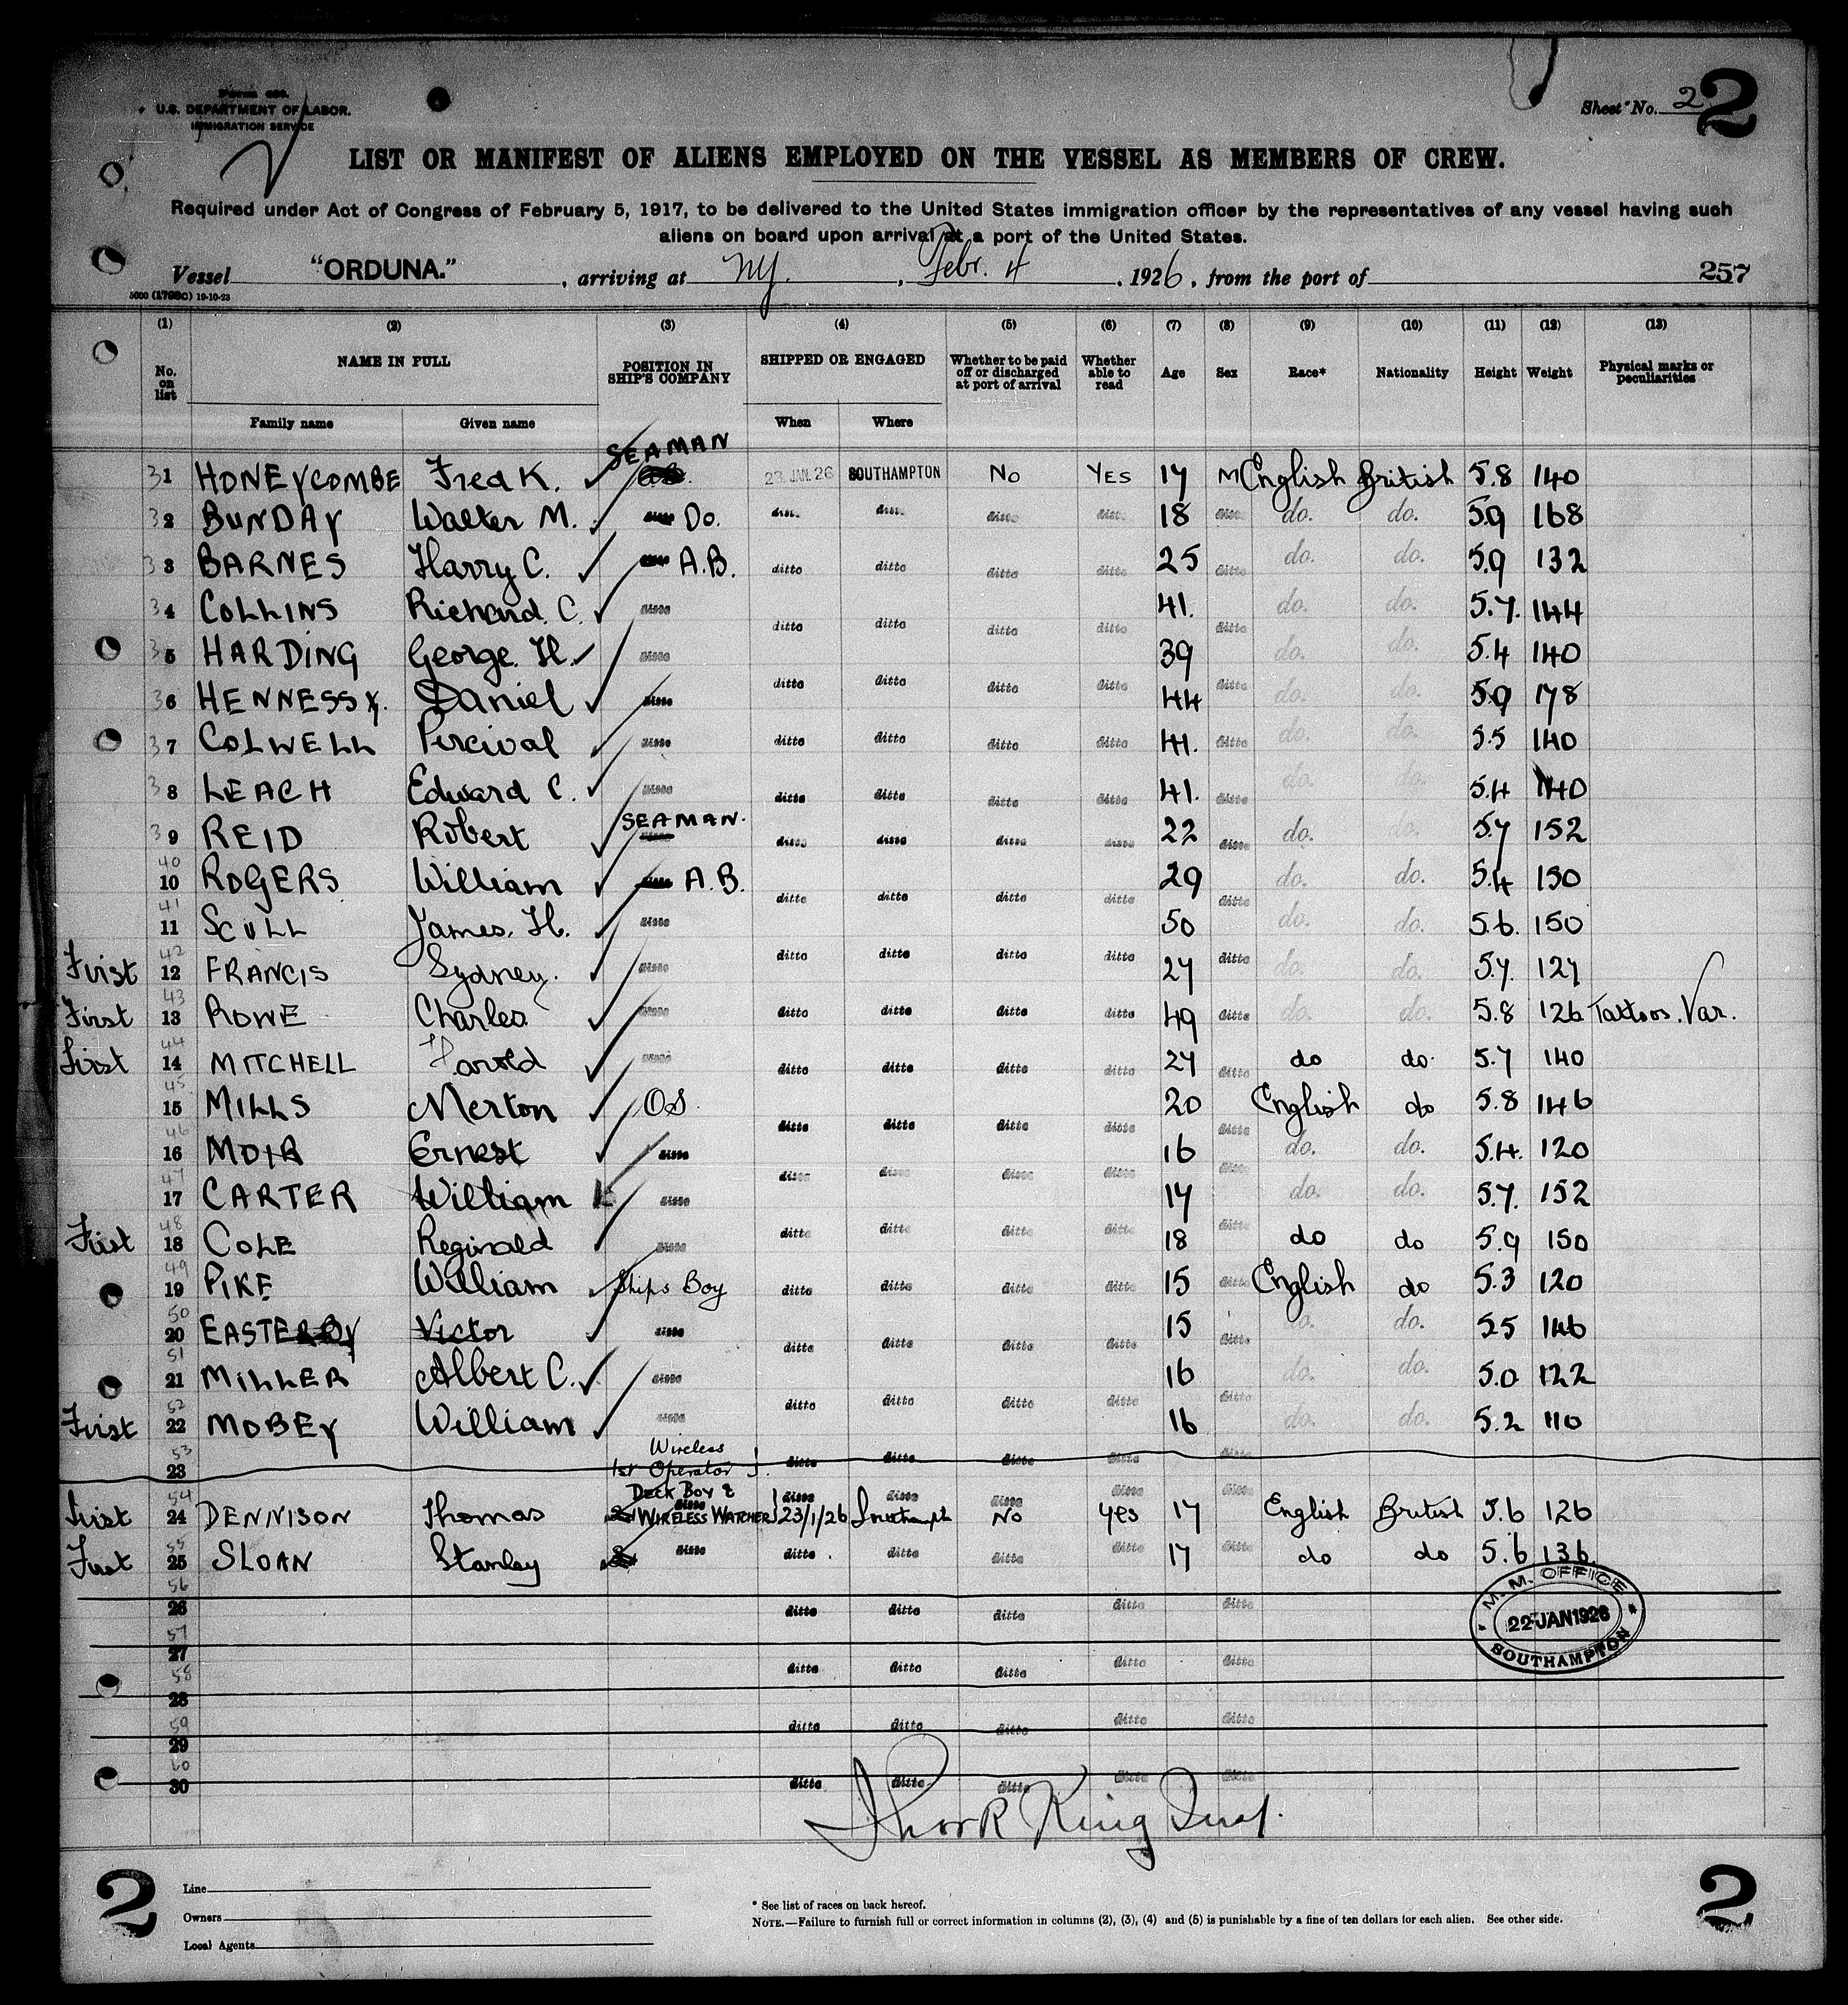 Form 689.
U.S. DEPARTMENT OF LABOR.
IMMIGRATION SERVICE
Sheet No. 2 2
LIST OR MANIFEST OF ALIENS EMPLOYED ON THE VESSEL AS MEMBERS OF CREW.
Required under Act of Congress of February 5, 1917, to be delivered to the United States immigration officer by the representatives of any vessel having such
aliens on board upon arrival at a port of the United States.
Vessel "ORDUNA." , arriving at NY. , Febr. 4 , 1926, from the port of 257
5000 (1798C) 19-10-23
(1) (2) (3) (4) (5) (6) (7) (8) (9) (10) (11) (12) (13)
No. on list NAME IN FULL POSITION IN SHIP'S COMPANY SHIPPED OR ENGAGED Whether to be paid off or discharged at port of arrival Whether able to read Age Sex Race* Nationality Height Weight Physical marks or peculiarities
Family name Given name When Where
31 HONEYCOMBE Fred K. SEAMAN 23 JAN. 26 SOUTHAMPTON No YES 17 M English British 5.8 140
32 BUNDAY Walter M. Do. ditto ditto ditto ditto 18 ditto do. do. 5.9 168
33 BARNES Harry C. A.B. ditto ditto ditto ditto 25 ditto do. do. 5.9 132
34 COLLINS Richard. C. ditto ditto ditto ditto ditto 41. ditto do. do. 5.7. 144
35 HARDING George. H. ditto ditto ditto ditto ditto 39 ditto do. do. 5.4 140
36 HENNESSY. Daniel ditto ditto ditto ditto ditto 44 ditto do. do. 5.9 178
37 COLWELL Percival ditto ditto ditto ditto ditto 41. ditto do. do. 5.5 140
38 LEACH Edward C. ditto ditto ditto ditto ditto 41. ditto do. do. 5.4 140
39 REID Robert SEAMAN. ditto ditto ditto ditto 22 ditto do. do. 5.7 152
40 10 ROGERS William A.B. ditto ditto ditto ditto 29 ditto do. do. 5.4 150
41 11 SCULL James. H. ditto ditto ditto ditto ditto 50 ditto do. do. 5.6. 150
First 42 12 FRANCIS Sydney. ditto ditto ditto ditto ditto 27 ditto do. do. 5.7. 127
First 43 13 ROWE Charles ditto ditto ditto ditto ditto 49 ditto do. do. 5.8 126 Tattoos. Var.
First 44 14 MITCHELL Harold ditto ditto ditto ditto ditto 27 ditto do do. 5.7 140
45 15 MILLS Merton O.S. ditto ditto ditto ditto 20 ditto English do 5.8 146
46 16 MOIR Ernest ditto ditto ditto ditto ditto 16 ditto do. do. 5.4. 120
47 17 CARTER William ditto ditto ditto ditto ditto 17 ditto do. do. 5.7. 152
First 48 18 COLE Reginald ditto ditto ditto ditto ditto 18 ditto do do 5.9 150
49 19 PIKE William Ships Boy ditto ditto ditto ditto 15 ditto English do 5.3 120
50 20 EASTERBY Victor ditto ditto ditto ditto ditto 15 ditto do. do. 5.5 146
51 21 MILLER Albert C. ditto ditto ditto ditto ditto 16 ditto do. do. 5.0 122
First 52 22 MOBEY William ditto ditto ditto ditto ditto 16 ditto do. do. 5.2 110
53 23 Wireless 1st Operator ditto ditto ditto ditto ditto
First 54 24 DENNISON Thomas DECK BOY & WIRELESS WATCHER 23/1/26 Southampton No yes 17 ditto English British 5.6 126
First 55 25 SLOAN Stanley ditto ditto ditto ditto ditto 17 ditto do do 5.6 136.
56 26 ditto ditto ditto ditto ditto
57 27
58 28 ditto ditto ditto ditto ditto
59 29 ditto ditto ditto ditto ditto
60 30 ditto ditto ditto ditto ditto
M. M. OFFICE
22 JAN 1926
SOUTHAMPTON
King
2 2
Line
Owners
Local Agents
* See list of races on back hereof.
NOTE.—Failure to furnish full or correct information in columns (2), (3), (4) and (5) is punishable by a fine of ten dollars for each alien. See other side.